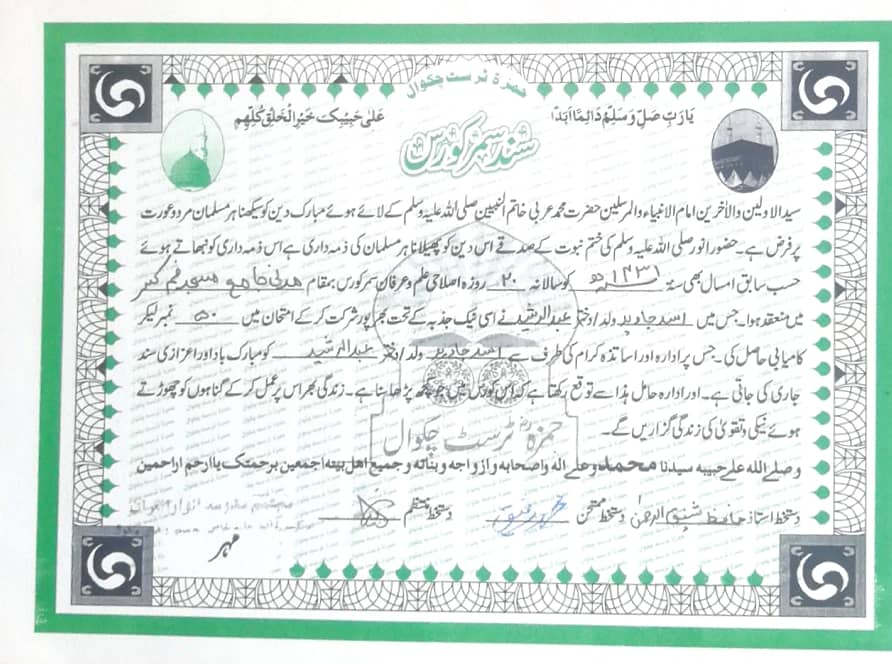 حمزہ ٹرسٹ چکوال
یَارَبِّ صَلِّ وَسَلِّمْ دَائِمًا اَبَدًا عَلٰی حَبِیْبِکَ خَیْرِ الْخَلْقِ کُلِّهِمِ
سند سمر کورس
سید الاولین والآخرین امام الانبیاء والمرسلین حضرت محمد عربی خاتم النبیین صلی اللہ علیہ وسلم کے لائے ہوئے مبارک دین کو سیکھنا ہر مسلمان مرد و عورت
پر فرض ہے۔ حضور انور صلی اللہ علیہ وسلم کی ختم نبوت کے صدقے اس دین کو پھیلانا ہر مسلمان کی ذمہ داری ہے اس ذمہ داری کو نبھاتے ہوئے
حسب سابق امسال بھی سنۃ ۱۴۳۱ھ کو سالانہ ۲۰ روزہ اصلاحی علم و عرفان سمر کورس بمقام مدنی جامع مسجد
میں منعقد ہوا۔ جس میں اسد جاوید ولد/دختر عبدالرشید نے اسی نیک جذبہ کے تحت بھرپور شرکت کر کے امتحان میں ۵۰ نمبر لیکر
کامیابی حاصل کی۔ جس پر ادارہ اور اساتذہ کرام کی طرف سے اسد جاوید ولد/دختر عبدالرشید کو مبارک باد اور اعزازی سند
جاری کی جاتی ہے۔ اور ادارہ حامل ہذا سے توقع رکھتا ہے کہ اس کورس میں جو کچھ پڑھا سنا ہے۔ زندگی بھر اس پر عمل کر کے گناہوں کو چھوڑتے
ہوئے نیکی و تقویٰ کی زندگی گزاریں گے۔
حمزہ ٹرسٹ چکوال
وصلے اللہ علے حبیبہ سیدنا محمد وعلے الہ واصحابہ وازواجہ وبناتہ وجمیع اھل بیتہ اجمعین برحمتک یاارحم اراحمین
دستخط استاذ حافظ شفیق الرحمٰن دستخط ممتحن دستخط منتظم
مہتمم مدرسہ انوار القرآن
مہر